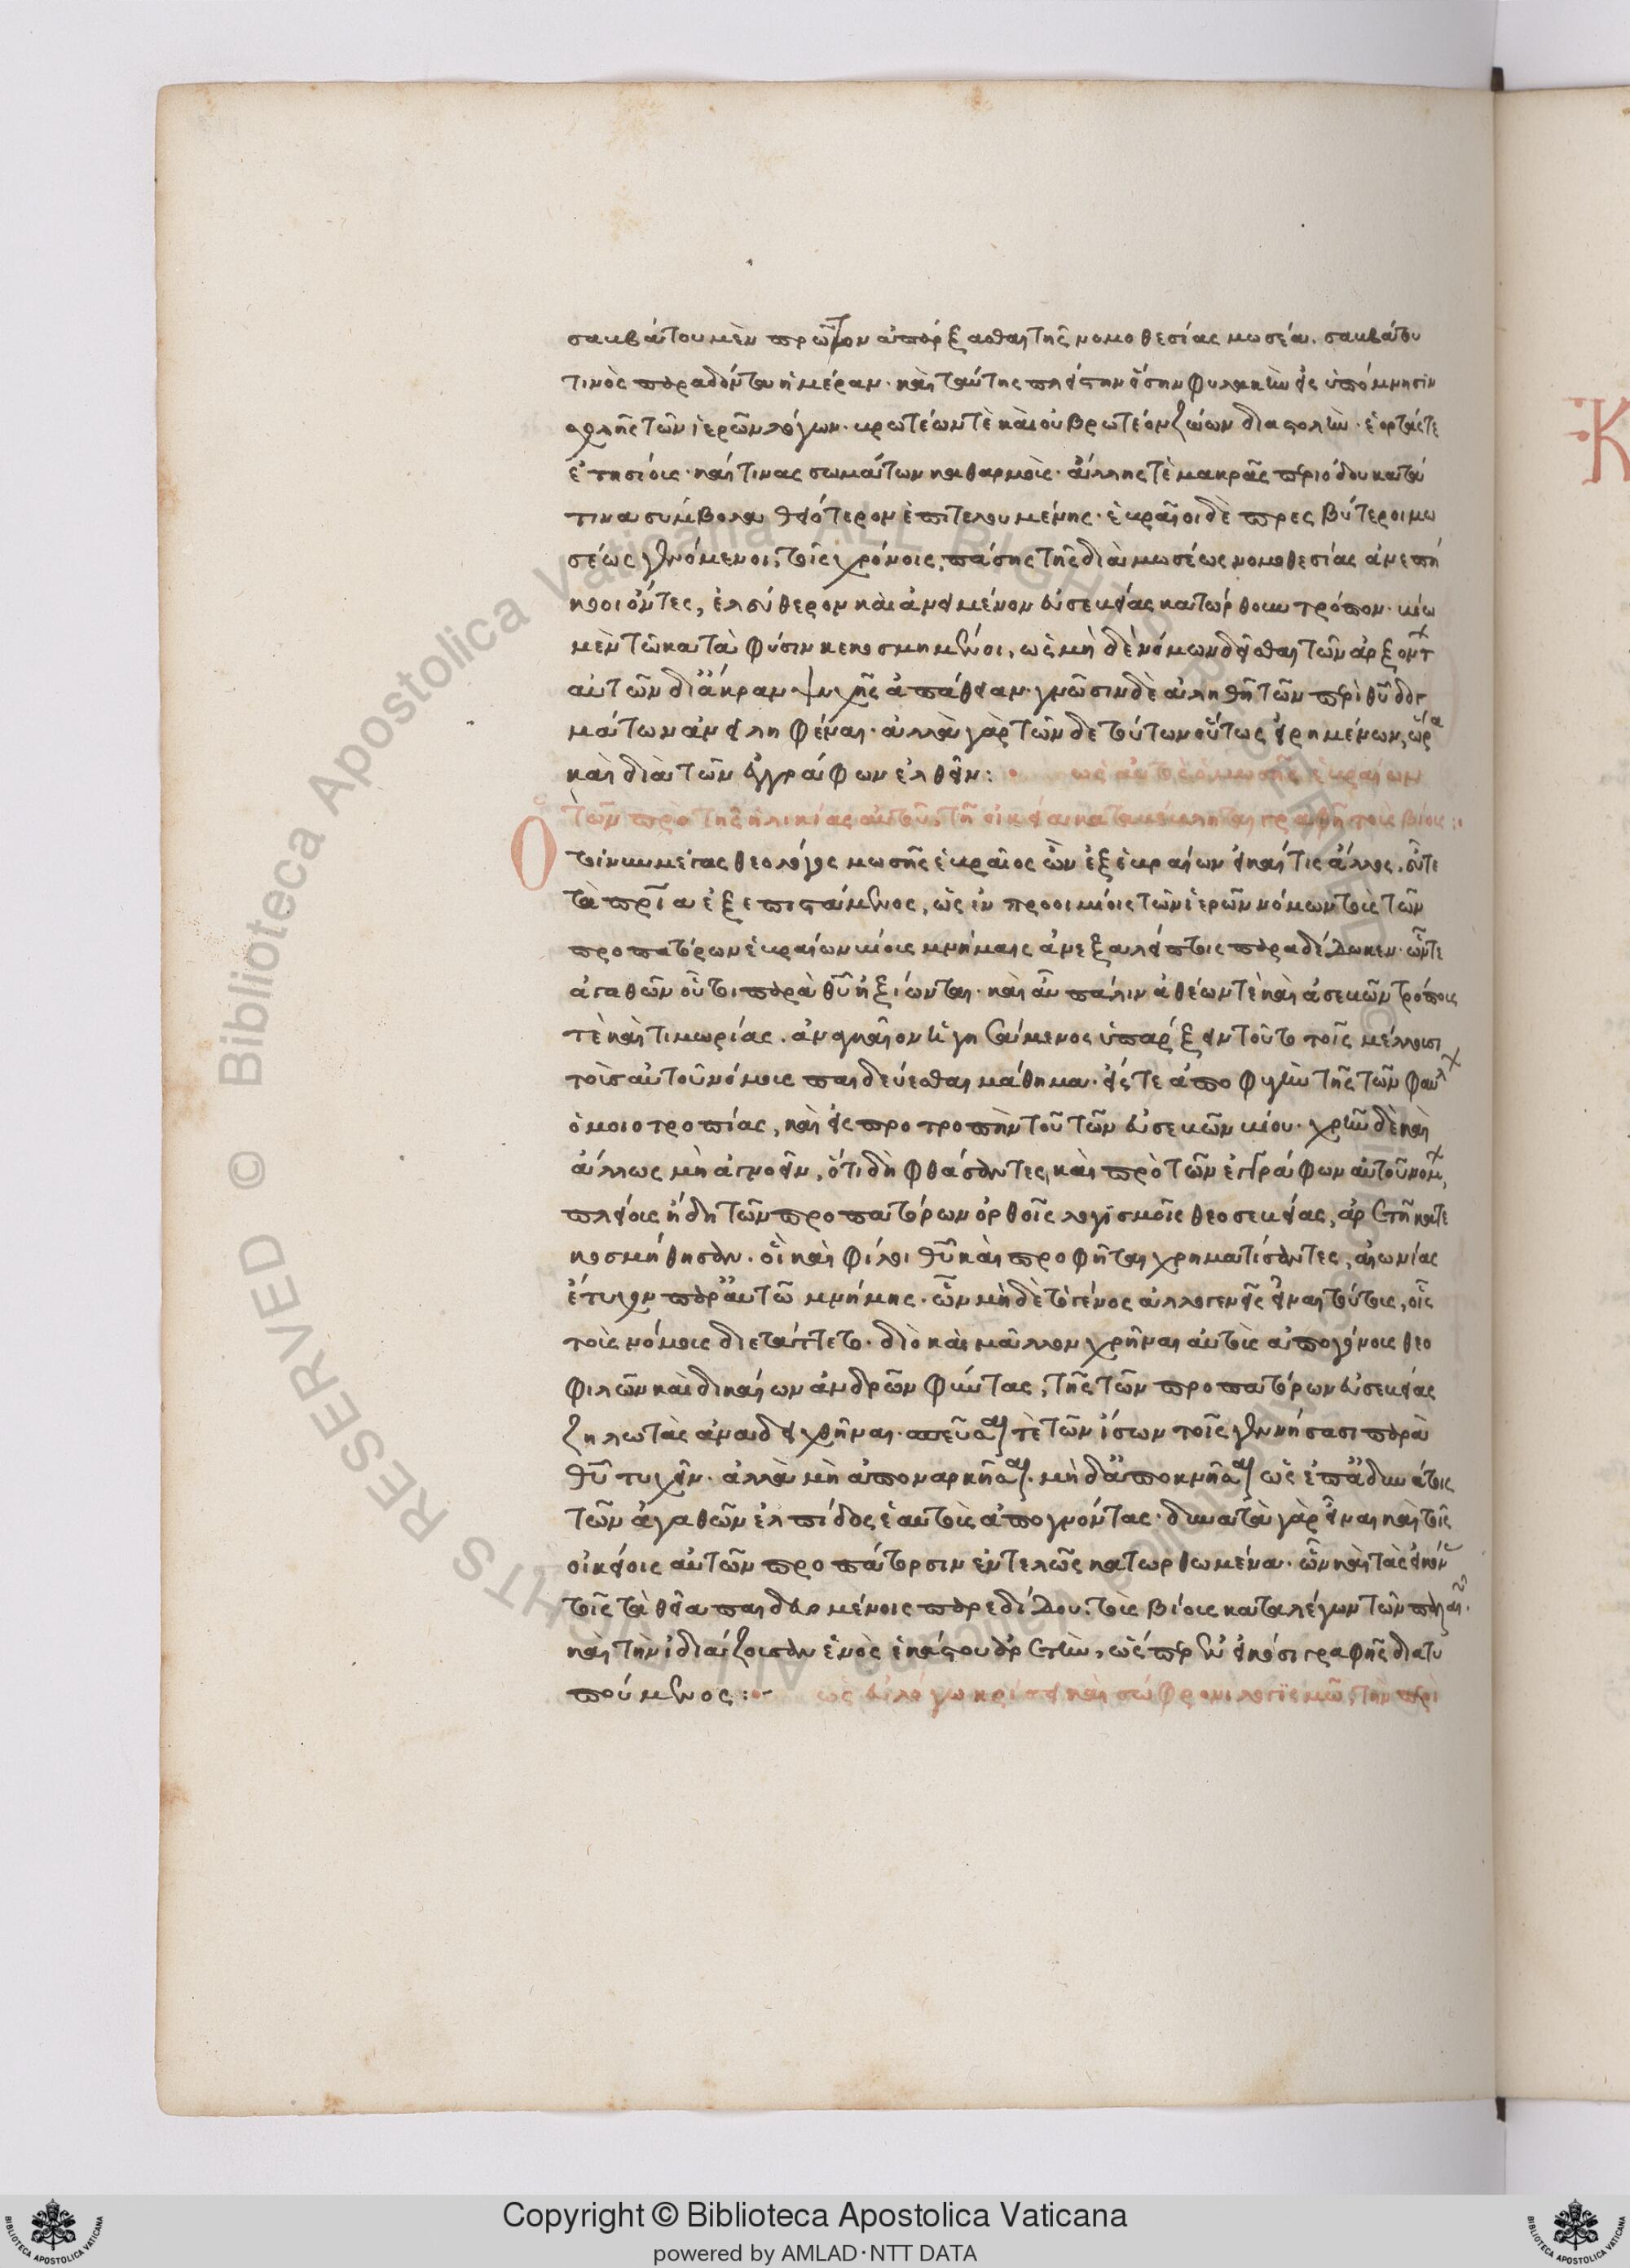 σαββάτου μὲν πρῶτον ἀπάρξασθαι τῆς νομοθεσίας μωσέα. σαββάτου
τινὸς παραδόντα ἡμέραν· καὶ ταύτης πλείστην ὅσην φυλακὴν εἰς ὑπόμνησιν
σχολῆς τῶν ἱερῶν λόγων· βρωτέων τὲ καὶ οὐ βρωτέον ζώων διαστολὴν· ἑορτάς τε
ἐτησίοις· καί τινας σωμάτων καθαρμοὺς· ἄλλης τὲ μακρᾶς περιόδου κατά
τινα σύμβολα θειότερον ἐπιτελουμένης· ἑβραῖοι δὲ πρεσβύτεροι μω
σέως γενόμενοι τοῖς χρόνοις, πάσης τῆς διὰ μωσέως νομοθεσίας ἀνεπή
κοοι ὄντες, ἐλεύθερον καὶ ἀνειμένον εὐσεβείας κατώρθουν τρόπον· βίω
μὲν τῶ κατὰ φύσιν κεκοσμημένοι, ὡς μὴ δὲ νόμων δεῖσθαι τῶν ἀρξόντ
αὐτῶν δι ἄκραν ψυχῆς ἀπάθειαν· γνῶσιν δὲ ἀληθῆ τῶν περὶ θῦ δογ
μάτων ἀνειληφέναι· ἀλλὰ γὰρ τῶνδε τούτων οὕτως εἰρημένων, ὥρα
καὶ διὰ τῶν ἐγγράφων ἐλθεῖν: ὡς αὐτὸς ὁ μωσῆς ἑβραίων
τῶν πρὸ τῆς ἡλικίας αὐτοῦ, τῆ οἰκεία καταβέβληται γραφῆ τοὺς βίους:
Ὁ τοίνυν μέγας θεολόγος μωσῆς ἑβραῖος ὢν ἐξ ἑβραίων εἰ καί τις ἄλλος, εὖ τε
τὰ πάτρια ἐξεπιστάμενος, ὡς ἐν προοιμίοις τῶν ἱερῶν νόμων τοὺς τῶν
προπατόρων ἑβραίων βίους μνήμαις ἀνεξαλείπτοις παραδέδωκεν· ὧν τε
ἀγαθῶν οὗτοι παρὰ θῦ ἠξίωνται· καὶ αὖ πάλιν ἀθέων τὲ καὶ ἀσεβῶν τρόπους
τὲ καὶ τιμωρίας. ἀναγκαῖον ἡγησάμενος ὑπάρξειν τοῦτο τοῖς μέλλουσι
τοὺς αὐτοῦ νόμους παιδεύεσθαι μάθημα· εἴς τε ἀποφυγὴν τῆς τῶν φαύλ
ὁμοιοτροπίας, καὶ εἰς προτροπὴν τοῦ τῶν εὐσεβῶν βίου· χρῆν δὲ καὶ
ἄλλως μὴ ἀγνοεῖν, ὅτι δὴ φθάσαντες καὶ πρὸ τῶν ἐγγράφων αὐτοῦ νόμ,
πλείους ἤδη τῶν προπατόρων ὀρθοῖς λογισμοῖς θεοσεβείας, ἀρετῆ κατε
κοσμήθησαν. οἳ καὶ φίλοι θῦ καὶ προφῆται χρηματίσαντες, αἰωνίας
ἔτυχον παρ' αὐτῶ μνήμης. ὧν μὴ δὲ τὸ γένος ἀλλογενεῖς εἶναι τούτους, οἷς
τοὺς νόμους διετάττετο· διὸ καὶ μᾶλλον χρῆναι αὐτοὺς ἀπογόνους θεο
φιλῶν καὶ δικαίων ἀνδρῶν φύντας, τῆς τῶν προπατόρων εὐσεβείας
ζηλωτὰς ἀναδειχθῆναι. σπεῦσαι τὲ τῶν ἴσων τοῖς γεννήσασι παρὰ
θῦ τυχεῖν. ἀλλὰ μὴ ἀποναρκῆσαι. μὴ δ' ἀποκνῆσαι ὡς ἐπ' ἀδυνάτοις
τῶν ἀγαθῶν ἐλπίδος ἑαυτοὺς ἀπογνόντας. δυνατὰ γὰρ εἶναι καὶ τοῖς
οἰκείοις αὐτῶν προπάτορσιν ἐντελῶς κατωρθωμένα. ὧν καὶ τὰς εἰκόν
τοῖς τὰ θεῖα παιδευομένοις παρεδίδου. τοὺς βίους καταλέγων τῶν παλαι.
καὶ τὴν ἰδιάζουσαν ἑνὸς ἑκάστου ἀρετὴν, ὥσπερ ἐν εἰκόσι γραφῆς διατυ
πούμενος:- ὡς εὐλόγω κρίσει καὶ σώφρονι λογισμῶ, τὴν περὶ
K
Copyright © Biblioteca Apostolica Vaticana
powered by AMLAD·NTT DATA
© Biblioteca Apostolica Vaticana ALL RIGHTS RESERVED